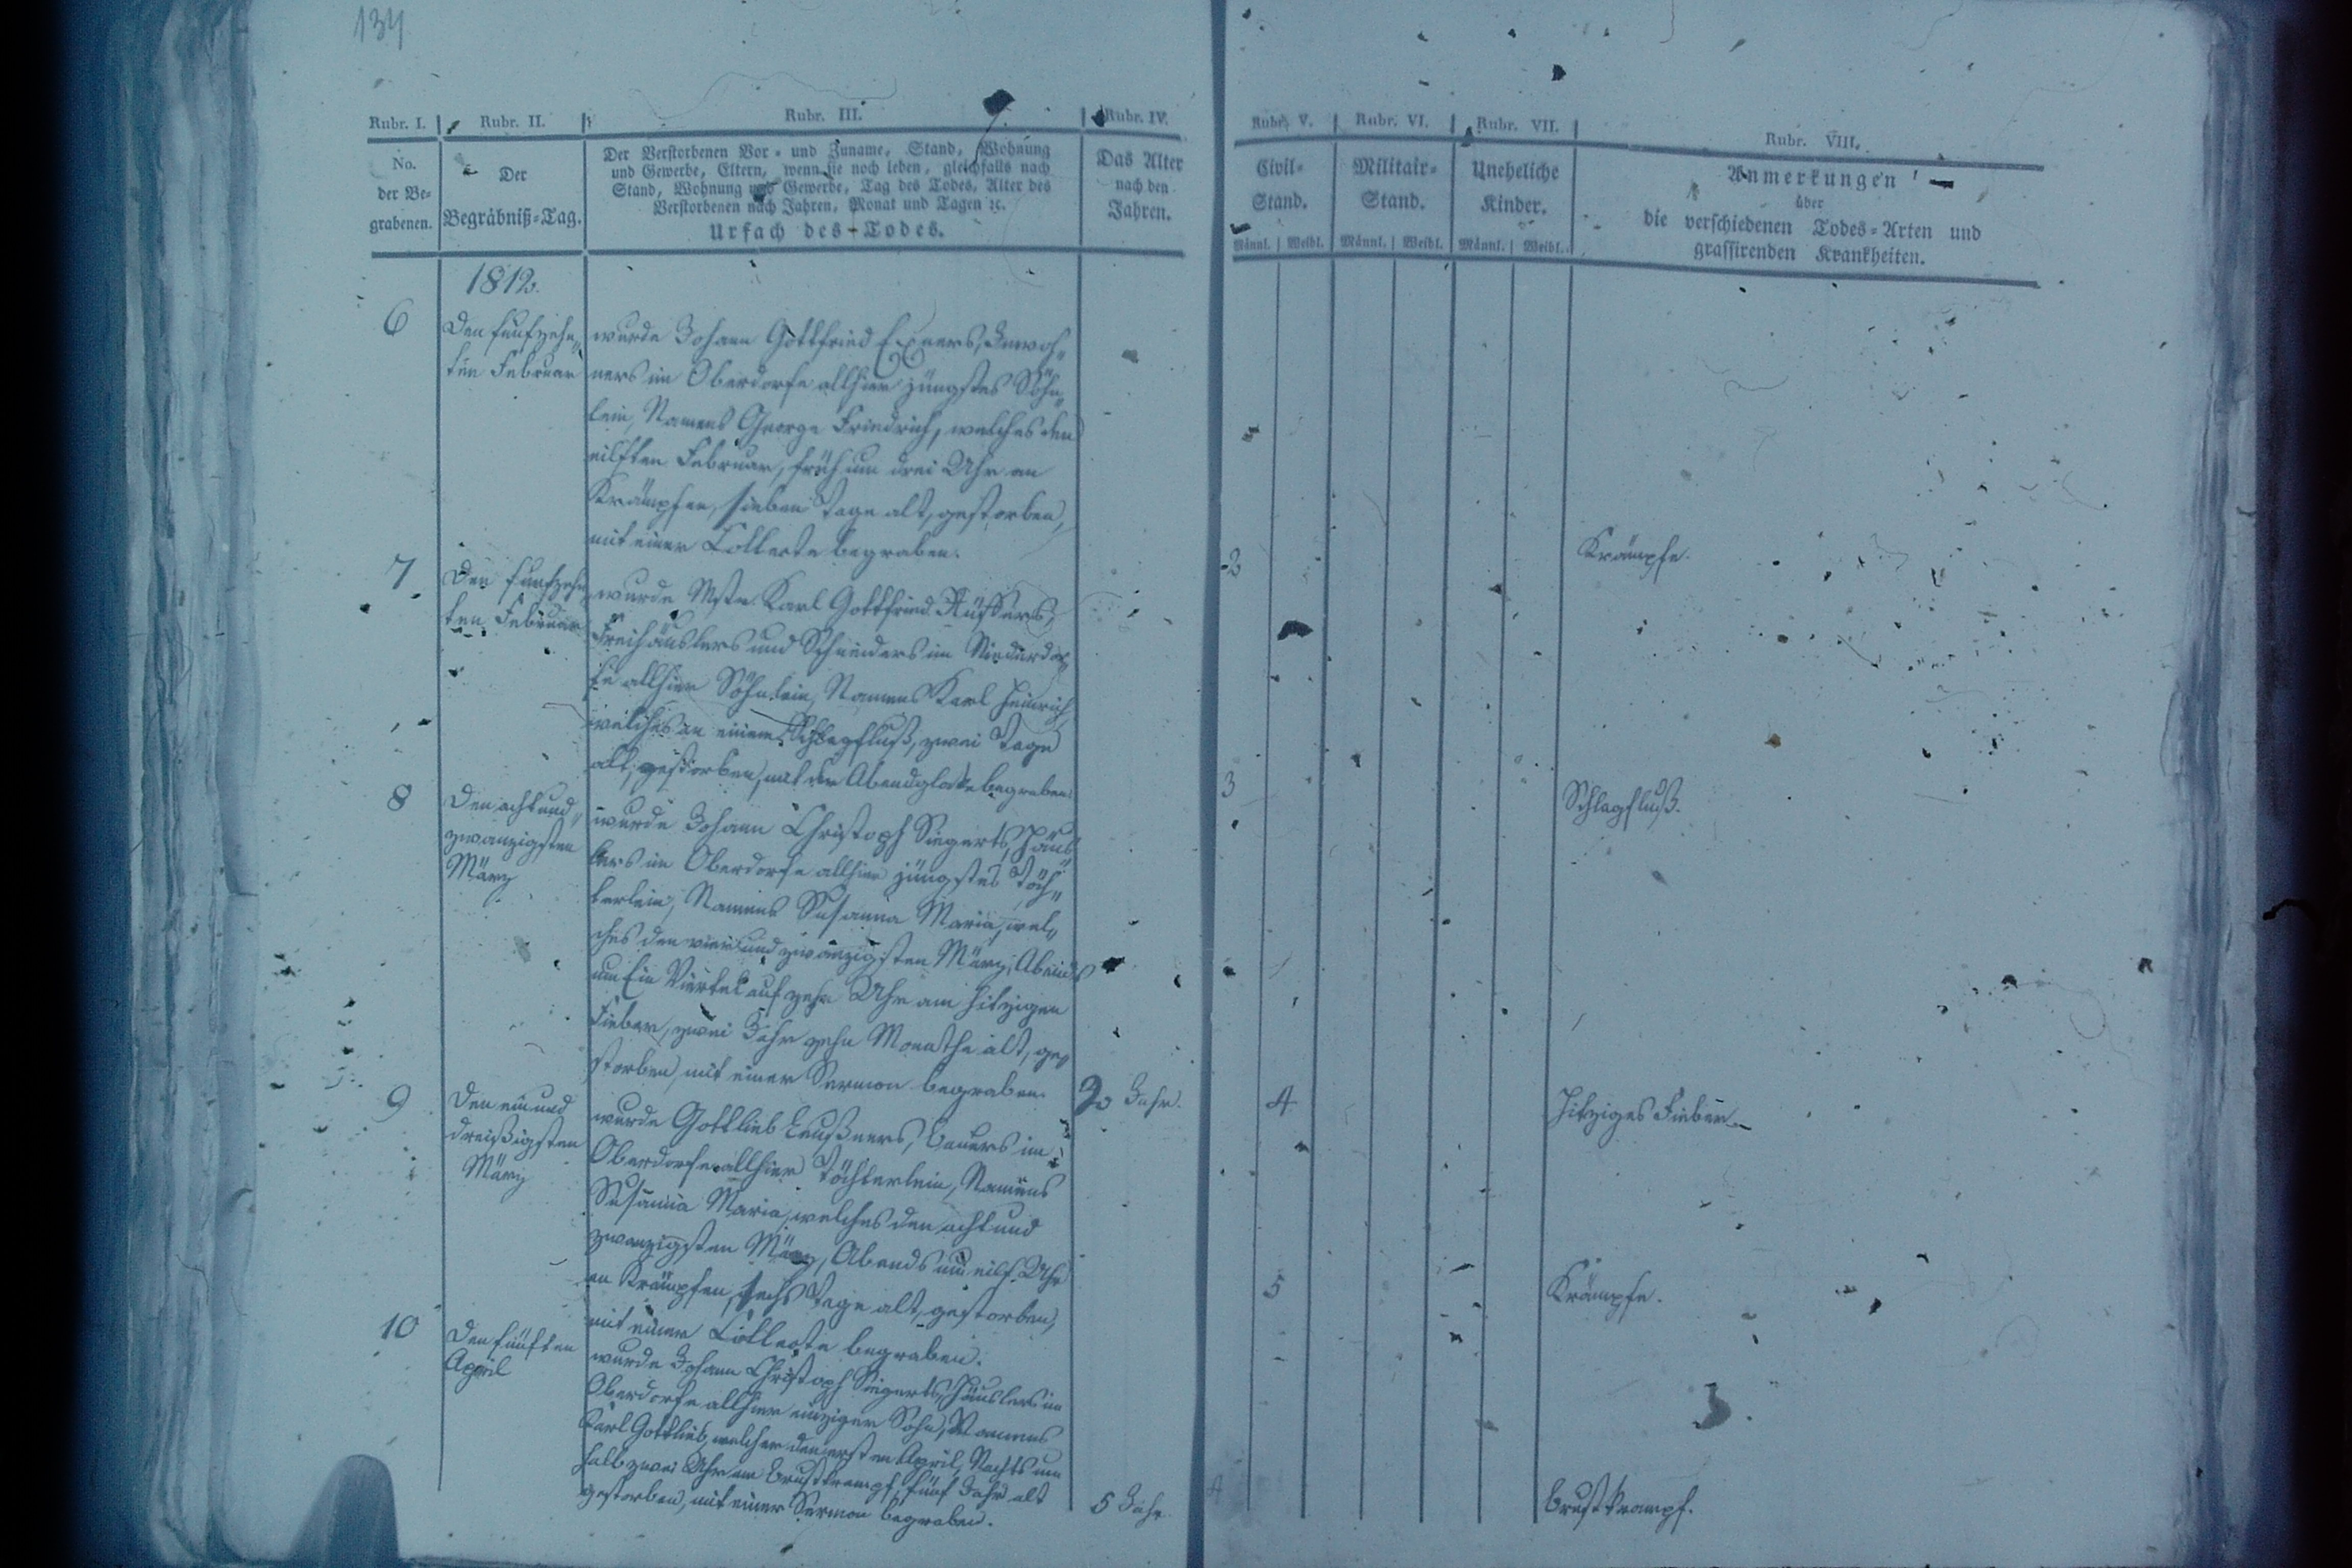 134
Rubr. I. Rubr. II. Rubr. III. Rubr. IV. Rubr. V. Rubr. VI. Rubr. VII. Rubr. VIII.
No.
der Be-
grabenen.
Der
Begräbniß-Tag.
Der Verstorbenen Vor- und Zuname, Stand, Wohnung
und Gewerbe, Eltern, wenn sie noch leben, gleichfalls nach
Stand, Wohnung und Gewerbe, Tag des Todes, Alter des
Verstorbenen nach Jahren, Monat und Tagen ꝛc.
Ursach des Todes.
Das Alter
nach den
Jahren.
Civil-
Stand.
Männl. Weibl.
Militair-
Stand.
Männl. Weibl.
Uneheliche
Kinder.
Männl. Weibl.
Anmerkungen
über
die verschiedenen Todes-Arten und
grassirenden Krankheiten.
1812.
6
Den funfzehn„
ten Februar
wurde Johann Gottfried Exners, Inwoh„
ners im Oberdorfe allhier jüngstes Söhn„
lein, Namens George Friedrich, welches den
eilften Februar, früh um drei Uhr an
Krämpfen, sieben Tage alt, gestorben,
mit einer Collecte begraben.
2
Krämpfe.
7
Den funfzehn„
ten Februar
wurde Mstr. Karl Gottfried
Freihäuslers und Schneiders im Niederdor„
fe allhier Söhnlein, Namens Karl Heinrich,
welches an einem Schlagfluß, zwei Tage
alt, gestorben, mit der Abendglocke begraben.
3
Schlagfluß.
8
Den acht und„
zwanzigsten
März
wurde Johann Christoph Siegerts, Häus„
lers im Oberdorfe allhier jüngstes Töch„
terlein, Namens Susanna Maria, wel„
ches den vier und zwanzigsten März, Abends
um Ein Viertel auf zehn Uhr am hitzigen
Fieber, zwei Jahr zehn Monathe alt, ge„
storben, mit einer Sermon begraben.
Jahr.
4
Hitziges Fieber.
9
Den ein und
dreißigsten
März
wurde Gottlieb Leußners, Bauers im
Oberdorfe allhier Töchterlein, Namens
Susanna Maria, welches den acht und
zwanzigsten März, Abends um eilf Uhr
an Krämpfen, sechs Tage alt, gestorben,
mit einer Collecte begraben.
5
Krämpfe.
10
Den fünften
April
wurde Johann Christoph Siegerts, Häuslers im
Oberdorfe allhier einziger Sohn, Namens
Karl Gottlieb, welcher den ersten April, Nachts um
halb zwei Uhr am Brustkrampf, fünf Jahr alt
gestorben, mit einer Sermon begraben.
5 Jahr
4
Brustkrampf.